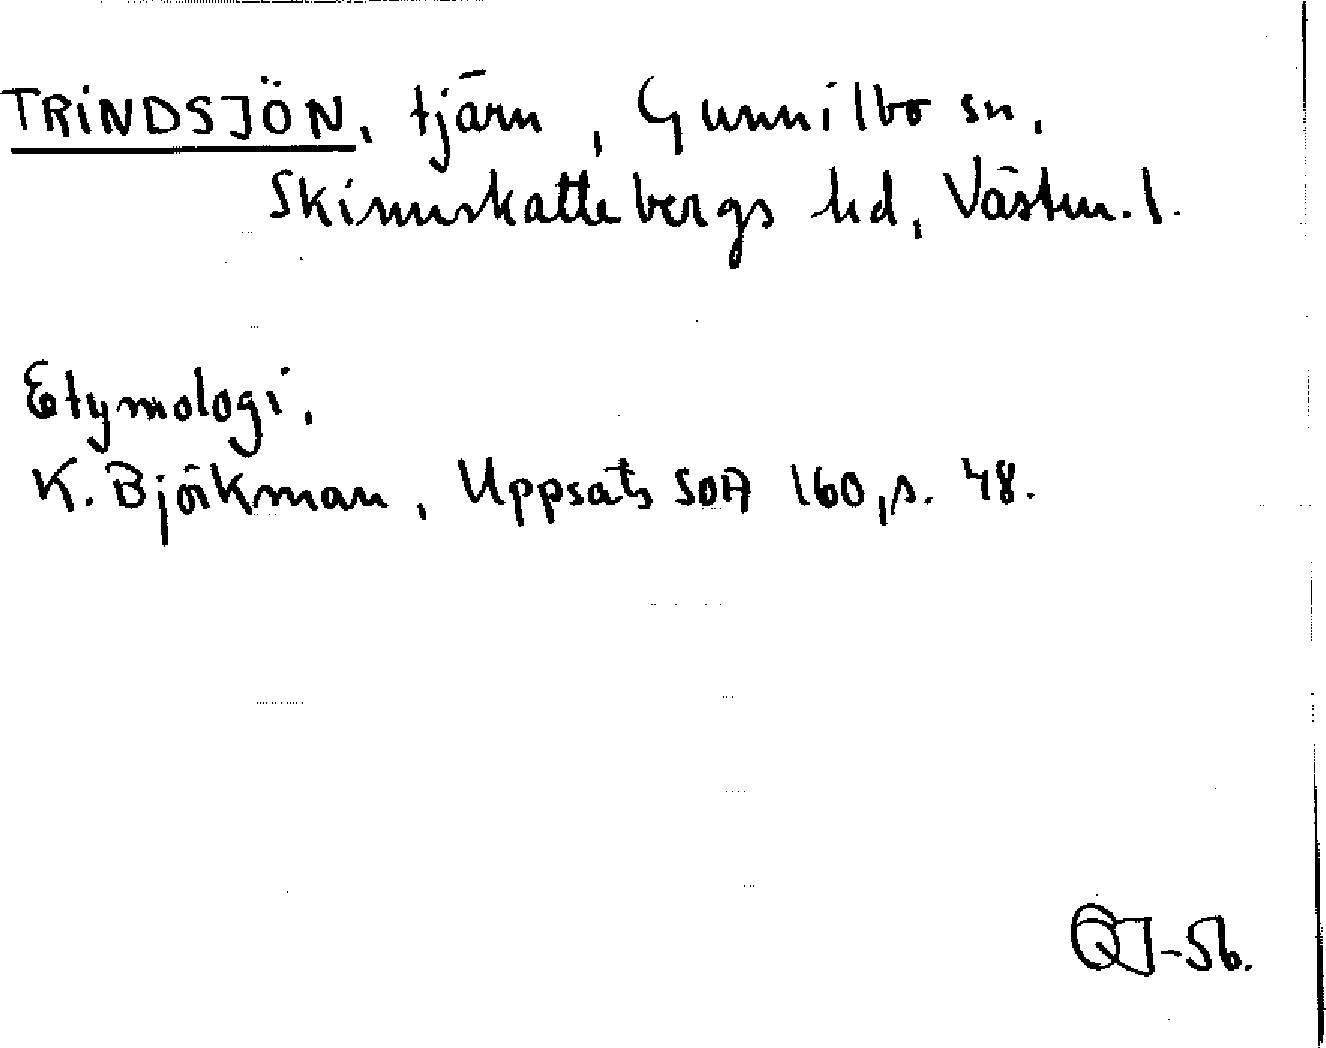 TRINDSJÖN, tjärn, Gunnilbo sn,
Skinnskattebergs hd, Västm. l.
Etymologi.
K. Björkman, Uppsats SOA 160, s. 48.
-56.